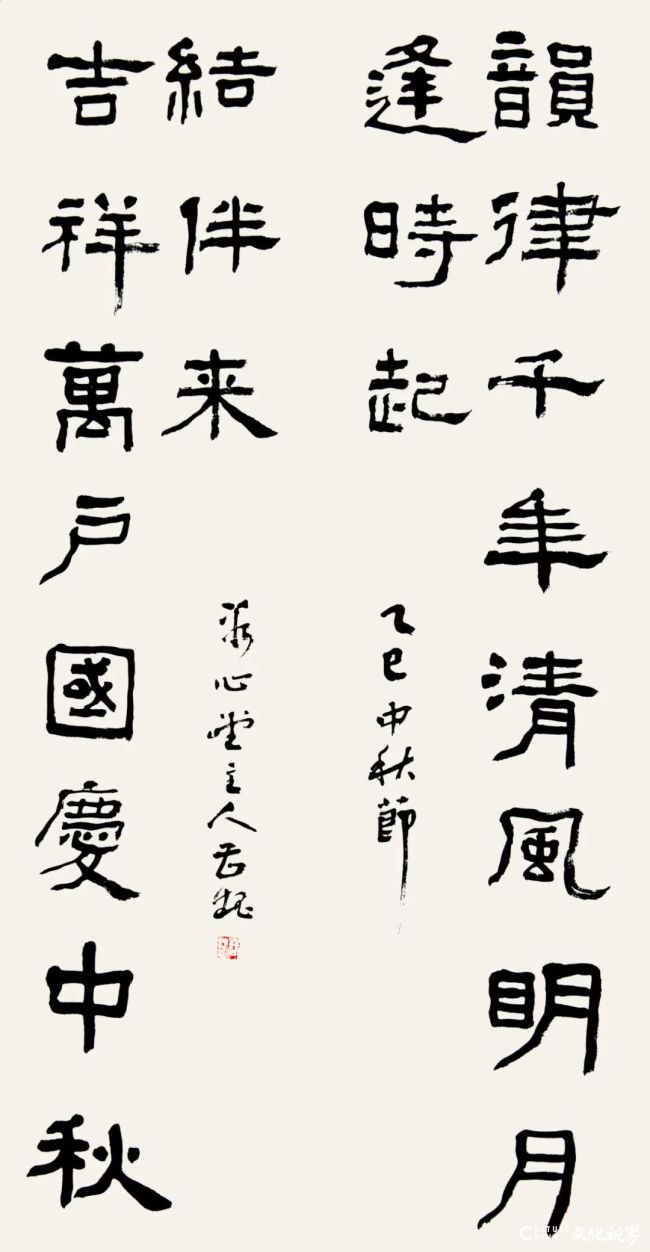 韻律千年清風明月
逢時起
乙巳中秋節
吉祥萬户國慶中秋
結伴来
心堂主人
CULTURE
CHINA
文化视界